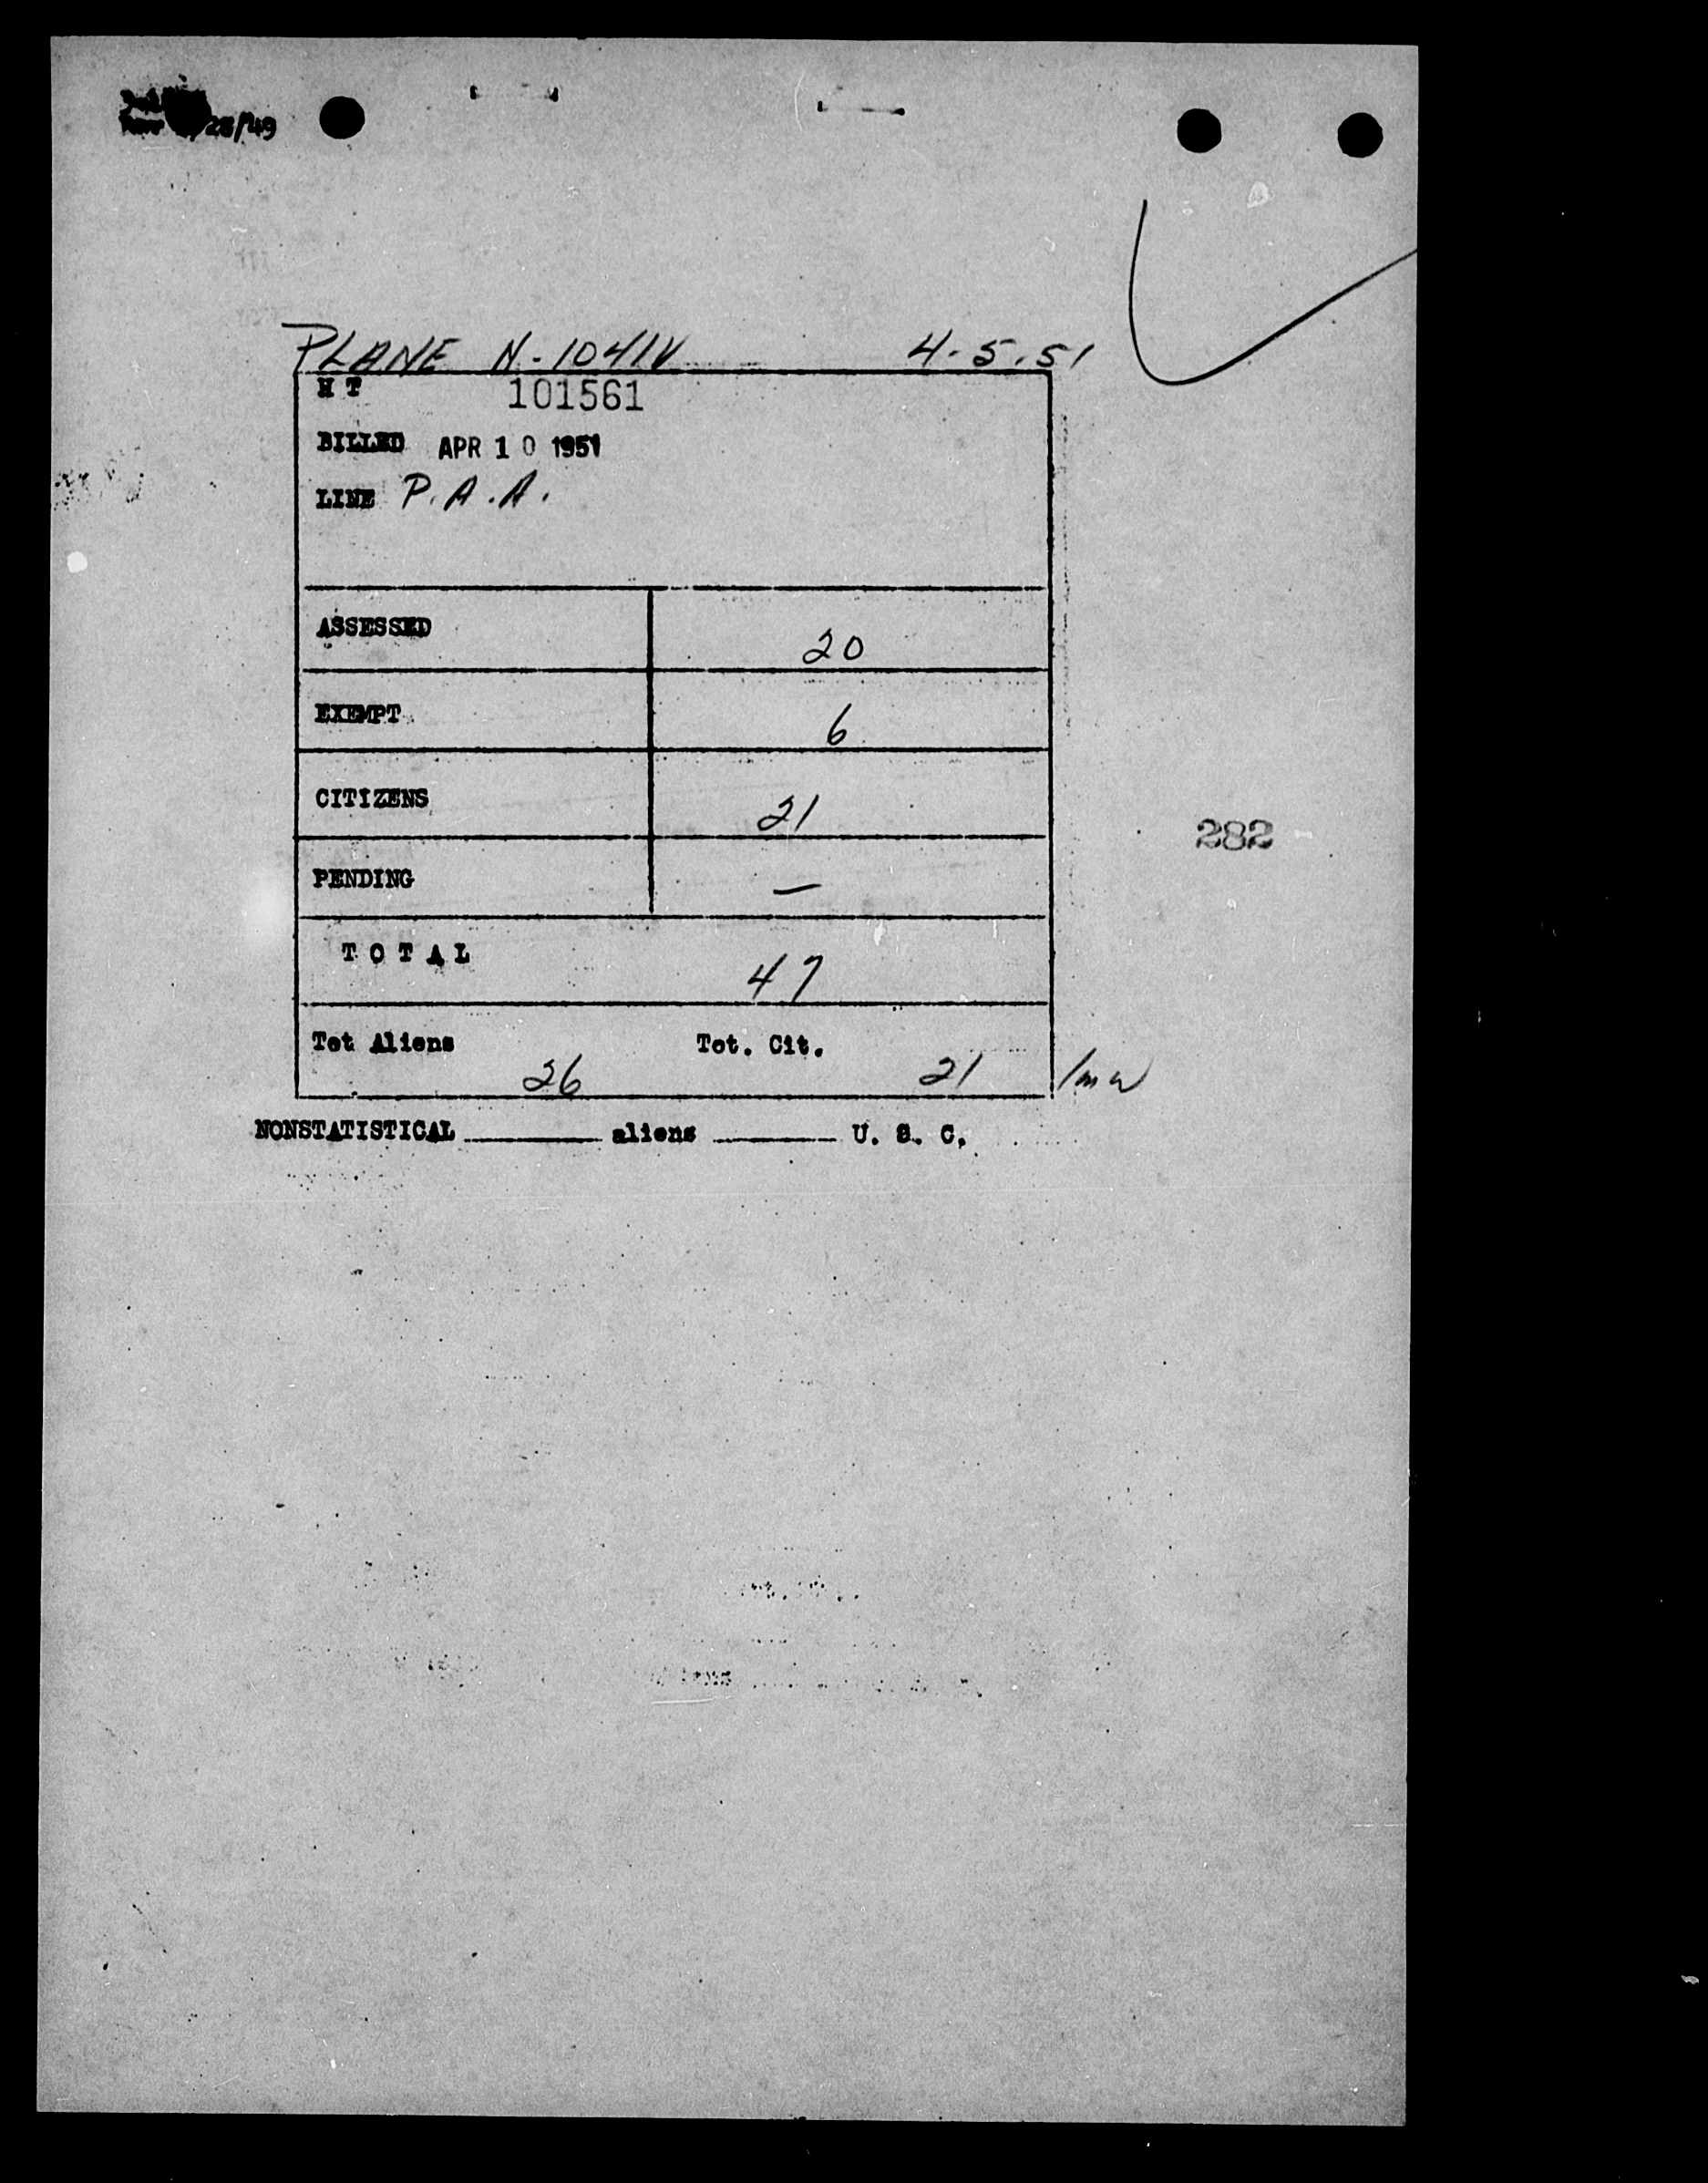 28/49
PLANE N-1041V 4-5-51
H T 101561
BILLED APR 10 1951
LINE P.A.A.
ASSESSED 20
EXEMPT 6
CITIZENS 21
282
PENDING —
T O T A L 47
Tot Aliens 26 Tot. Cit. 21
NONSTATISTICAL ______ aliens ______ U. S. C.